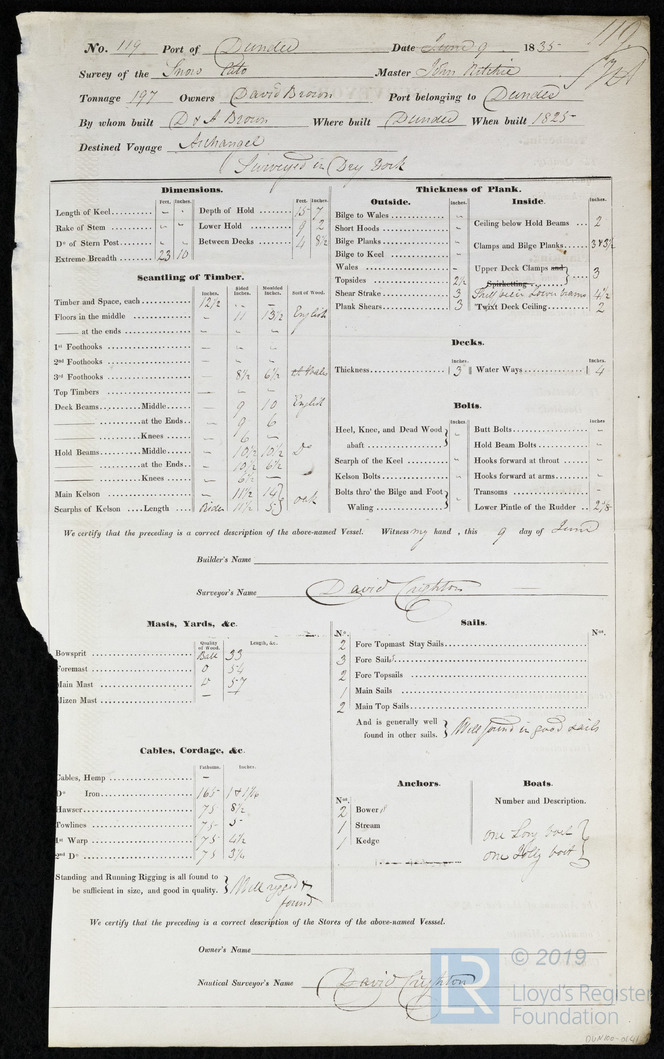 119
No. 119 Port of Dundee Date June 9 1835
Survey of the Snow Cato Master John Ritchie
Tonnage 197 Owners David Brown Port belonging to Dundee
By whom built D & A Brown Where built Dundee When built 1825
Destined Voyage Archangel
Surveyed in Dry Dock
Dimensions.
Feet. Inches. Feet. Inches.
Length of Keel - - Depth of Hold 15 7
Rake of Stem - - Lower Hold 9 2
Do of Stern Post - - Between Decks 4 8½
Extreme Breadth 23 10
Scantling of Timber.
Inches. Sided Inches. Moulded Inches. Sort of Wood.
Timber and Space, each 12½ - -
Floors in the middle - 11 13½ English
—— at the ends - - -
1st Foothooks - - -
2nd Foothooks - - -
3rd Foothooks - 8½ 6½
Top Timbers - - -
Deck Beams Middle - 9 10 English
—— at the Ends - 9 6
—— Knees - 6 -
Hold Beams Middle - 10½ 10½ Do
—— at the Ends - 10½ 6½
—— Knees - 6½ -
Main Kelson - 11½ 14 } oak
Scarphs of Kelson Length Rider 11½ 5 }
Thickness of Plank.
Outside. Inches. Inside. Inches.
Bilge to Wales - Ceiling below Hold Beams 2
Short Hoods -
Bilge Planks - Clamps and Bilge Planks 3 & 3½
Bilge to Keel -
Wales - Upper Deck Clamps and } 3
Topsides 2½ Spirketting
Shear Strake 3 4½
Plank Shears 3 Twixt Deck Ceiling 2
Decks.
Inches. Inches.
Thickness 3 Water Ways 4
Bolts.
Inches. Inches
Heel, Knee, and Dead Wood } abaft - Butt Bolts -
Hold Beam Bolts -
Scarph of the Keel - Hooks forward at throat -
Kelson Bolts - Hooks forward at arms -
Bolts thro' the Bilge and Foot } Waling - Transoms -
Lower Pintle of the Rudder 2⅝
We certify that the preceding is a correct description of the above-named Vessel. Witness my hand, this 9 day of June
Builder's Name
Surveyor's Name David Crighton
Masts, Yards, &c.
Quality of Wood. Length, &c.
Bowsprit Balt 33
Foremast 54
Main Mast 57
Mizen Mast -
Sails.
No. Nos.
2 Fore Topmast Stay Sails
3 Fore Sails
2 Fore Topsails
1 Main Sails
2 Main Top Sails
And is generally well found in other sails. } Well found in good sails
Cables, Cordage, &c.
Fathoms. Inches.
Cables, Hemp -
Do Iron 165 1 & 1 1/16
Hawser 75 8½
Towlines 75 5
1st Warp 75 4½
2nd Do 75 3½
Standing and Running Rigging is all found to be sufficient in size, and good in quality. } Well rigged & found
Anchors.
Nos.
2 Bowers
1 Stream
1 Kedge
Boats.
Number and Description.
one Long boat }
one Jolly boat }
We certify that the preceding is a correct description of the Stores of the above-named Vesssel.
Owner's Name
Nautical Surveyor's Name David Crighton
LR © 2019
Lloyd's Register
Foundation